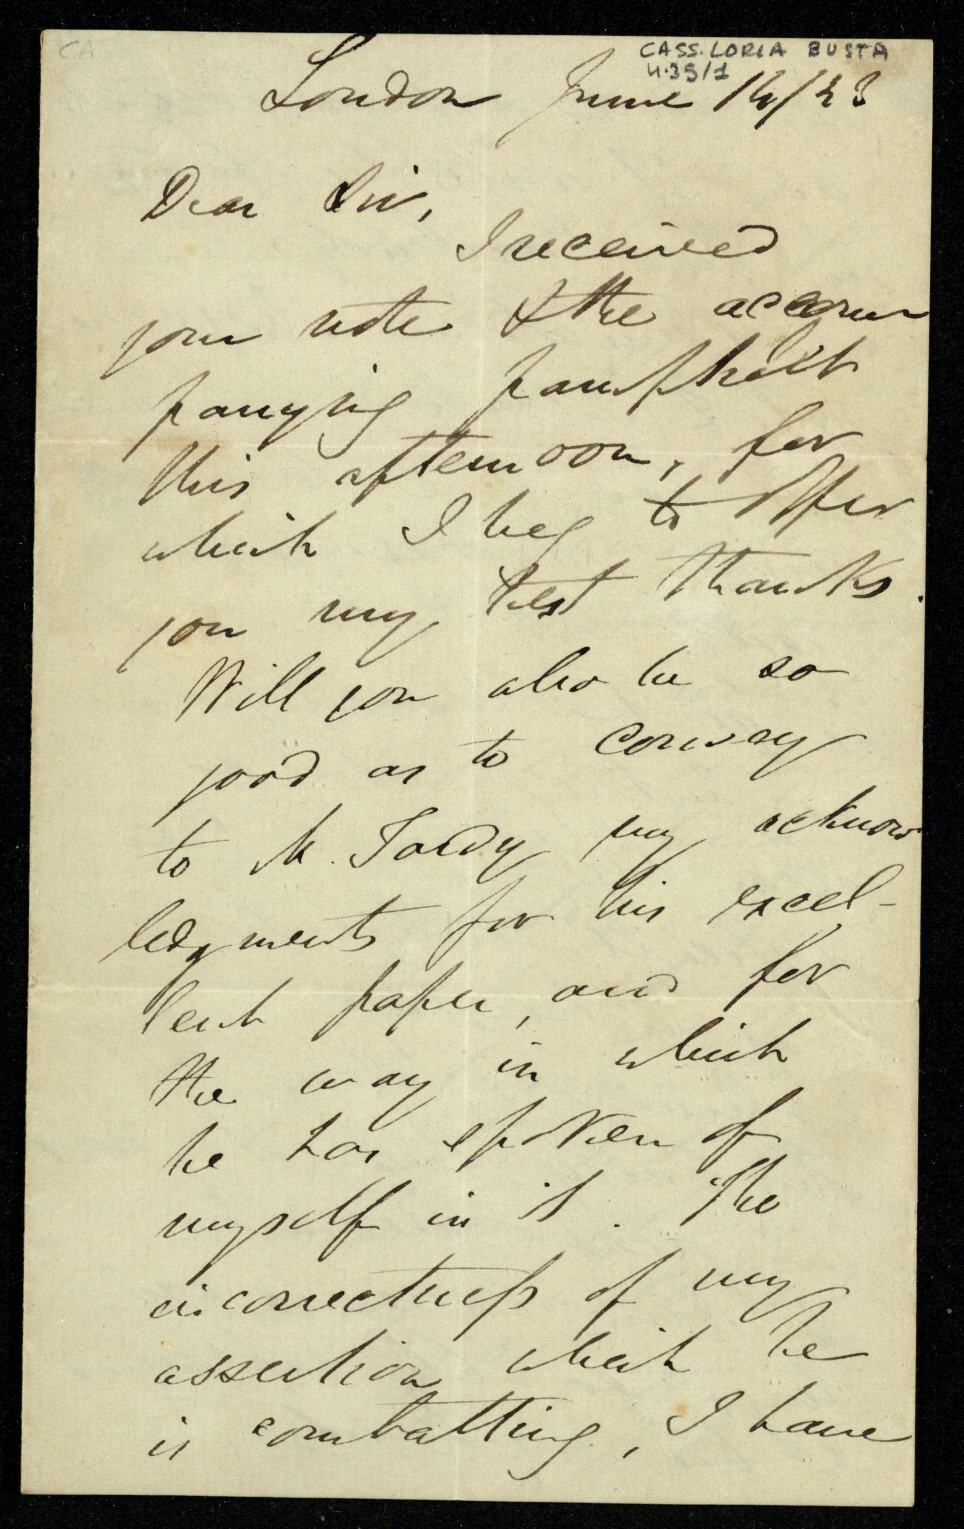 CA
CASS. LORIA BUSTA
4.35/1
London June 14/83
Dear Sir,
I received
your note & the accom
panying pamphlet
this afternoon, for
which I beg to offer
you my best thanks.
Will you also be so
good as to convey
to M. Tardy my acknow
ledgments for his excel-
lent paper, and for
the way in which
he has spoken of
myself in it. The
incorrectness of my
assertion which he
is combatting, I have